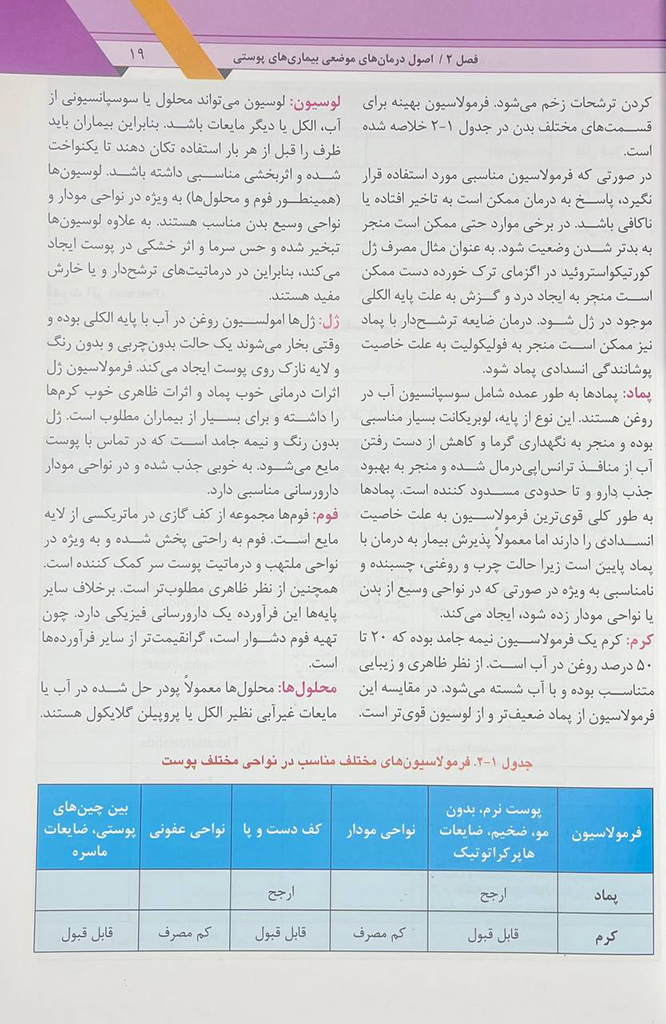 فصل ۲/ اصول درمان‌های موضعی بیماری‌های پوستی
۱۹
کردن ترشحات زخم می‌شود. فرمولاسیون بهینه برای
قسمت‌های مختلف بدن در جدول ۱-۲ خلاصه شده
است.
در صورتی که فرمولاسیون مناسبی مورد استفاده قرار
نگیرد، پاسخ به درمان ممکن است به تاخیر افتاده یا
ناکافی باشد. در برخی موارد حتی ممکن است منجر
به بدتر شدن وضعیت شود. به عنوان مثال مصرف ژل
کورتیکواستروئید در اگزمای ترک خورده دست ممکن
است منجر به ایجاد درد و گزش به علت پایه الکلی
موجود در ژل شود. درمان ضایعه ترشح‌دار با پماد
نیز ممکن است منجر به فولیکولیت به علت خاصیت
پوشانندگی انسدادی پماد شود.
پماد: پمادها به طور عمده شامل سوسپانسیون آب در
روغن هستند. این نوع از پایه، لوبریکانت بسیار مناسبی
بوده و منجر به نگهداری گرما و کاهش از دست رفتن
آب از منافذ ترانس‌اپی‌درمال شده و منجر به بهبود
جذب دارو و تا حدودی مسدود کننده است. پمادها
به طور کلی قوی‌ترین فرمولاسیون به علت خاصیت
انسدادی را دارند اما معمولاً پذیرش بیمار به درمان با
پماد پایین است زیرا حالت چرب و روغنی، چسبنده و
نامناسبی به ویژه در صورتی که در نواحی وسیع از بدن
یا نواحی مودار زده شود، ایجاد می‌کند.
کرم: کرم یک فرمولاسیون نیمه جامد بوده که ۲۰ تا
۵۰ درصد روغن در آب است. از نظر ظاهری و زیبایی
متناسب بوده و با آب شسته می‌شود. در مقایسه این
فرمولاسیون از پماد ضعیف‌تر و از لوسیون قوی‌تر است.
لوسیون: لوسیون می‌تواند محلول یا سوسپانسیونی از
آب، الکل یا دیگر مایعات باشد. بنابراین بیماران باید
ظرف را قبل از هر بار استفاده تکان دهند تا یکنواخت
شده و اثربخشی مناسبی داشته باشد. لوسیون‌ها
(همینطور فوم و محلول‌ها) به ویژه در نواحی مودار و
نواحی وسیع بدن مناسب هستند. به علاوه لوسیون‌ها
تبخیر شده و حس سرما و اثر خشکی در پوست ایجاد
می‌کند، بنابراین در درماتیت‌های ترشح‌دار و یا خارش
مفید هستند.
ژل: ژل‌ها امولسیون روغن در آب با پایه الکلی بوده و
وقتی بخار می‌شوند یک حالت بدون‌چربی و بدون رنگ
و لایه نازک روی پوست ایجاد می‌کند. فرمولاسیون ژل
اثرات درمانی خوب پماد و اثرات ظاهری خوب کرم‌ها
را داشته و برای بسیار از بیماران مطلوب است. ژل
بدون رنگ و نیمه جامد است که در تماس با پوست
مایع می‌شود. به خوبی جذب شده و در نواحی مودار
دارورسانی مناسبی دارد.
فوم: فوم‌ها مجموعه از کف گازی در ماتریکسی از لایه
مایع است. فوم به راحتی پخش شده و به ویژه در
نواحی ملتهب و درماتیت پوست سر کمک کننده است.
همچنین از نظر ظاهری مطلوب‌تر است. برخلاف سایر
پایه‌ها این فرآورده یک دارورسانی فیزیکی دارد. چون
تهیه فوم دشوار است، گرانقیمت‌تر از سایر فرآورده‌ها
است.
محلول‌ها: محلول‌ها معمولاً پودر حل شده در آب یا
مایعات غیرآبی نظیر الکل یا پروپیلن گلایکول هستند.
جدول ۱-۲. فرمولاسیون‌های مختلف مناسب در نواحی مختلف پوست
فرمولاسیون
پوست نرم، بدون
مو، ضخیم، ضایعات
هایپرکراتوتیک
نواحی مودار
کف دست و پا
نواحی عفونی
بین چین‌های
پوستی، ضایعات
ماسره
پماد
ارجح
ارجح
کرم
قابل قبول
کم مصرف
قابل قبول
کم مصرف
قابل قبول